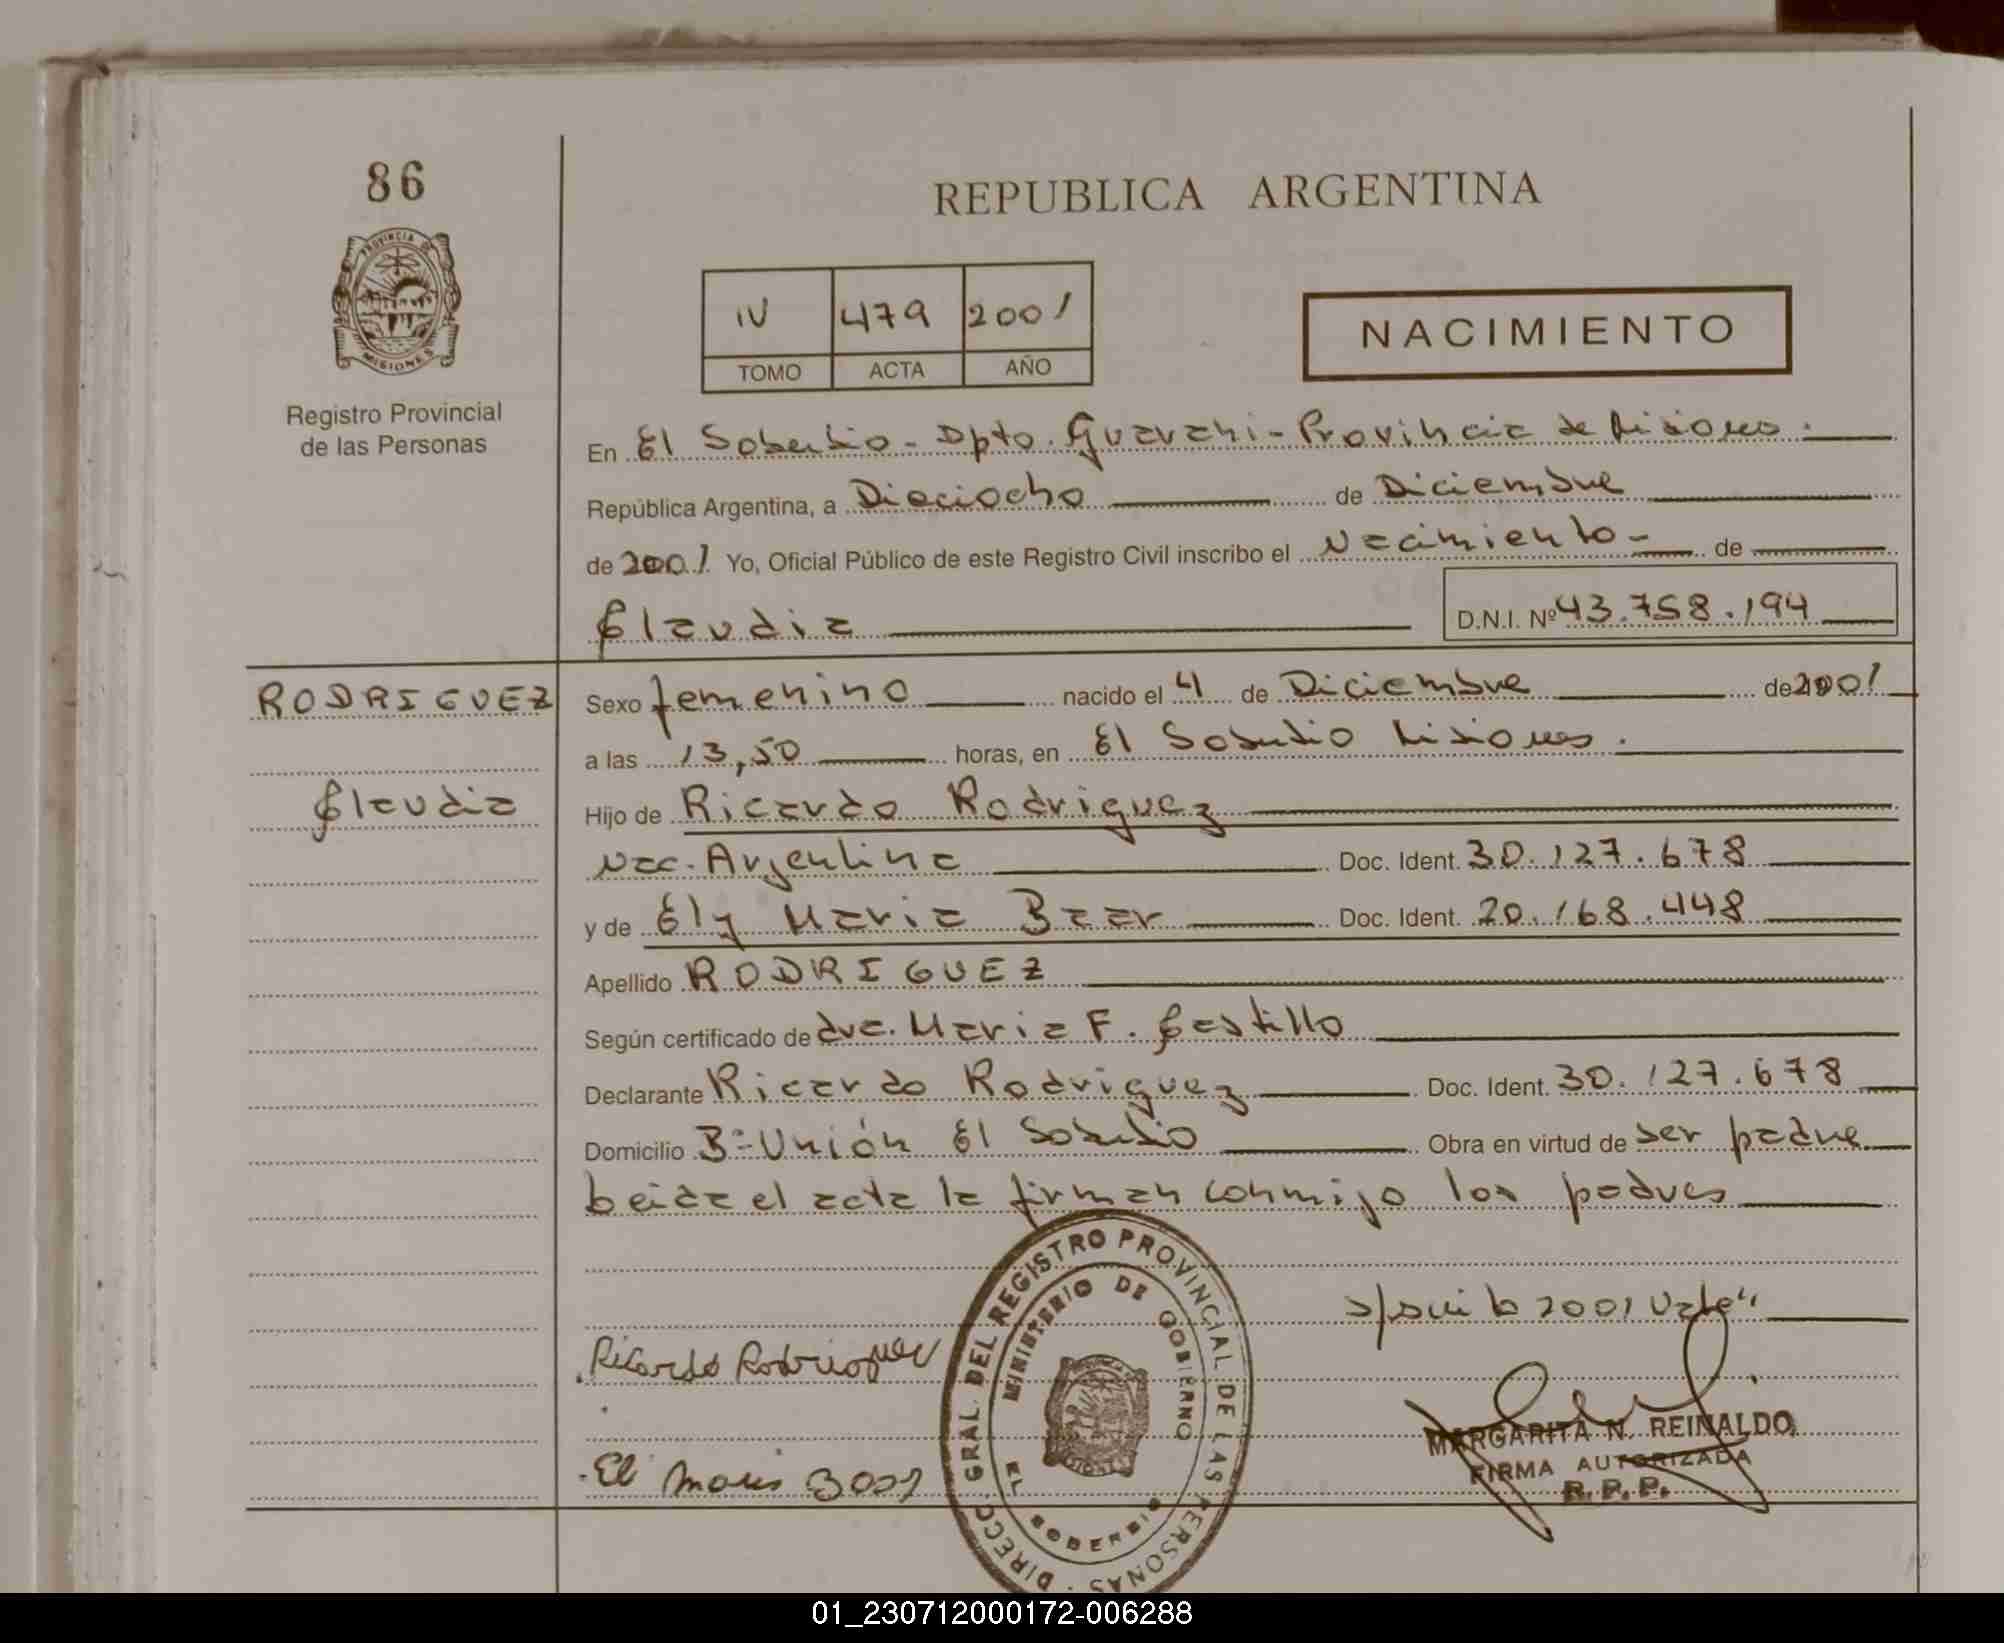 86
REPUBLICA ARGENTINA
PROVINCIA DE
MISIONES
Registro Provincial
de las Personas
IV 479 2001
TOMO ACTA AÑO
NACIMIENTO
En El Soberbio - Dpto. Guarani - Provincia de Misiones.
República Argentina, a Dieciocho de Diciembre
de 2001 Yo, Oficial Público de este Registro Civil inscribo el Nacimiento - de
Claudia D.N.I. Nº 43.758.194
RODRIGUEZ
Claudia
Sexo femenino nacido el 4 de Diciembre de 2001
a las 13,50 horas, en El Soberbio Misiones.
Hijo de Ricardo Rodriguez
Nac. Argentina Doc. Ident. 30.127.678
y de Ely Maria Baar Doc. Ident. 20.168.448
Apellido RODRIGUEZ
Según certificado de dra. Maria F. Castillo
Declarante Ricardo Rodriguez Doc. Ident. 30.127.678
Domicilio Bº Unión El Soberbio Obra en virtud de ser padre
Leida el acta la firman conmigo los padres
2001 Vale"
Ricardo Rodriguez
MARGARITA N. REINALDO
FIRMA AUTORIZADA
R.P.P.
DIRECC. GRAL. DEL REGISTRO PROVINCIAL DE LAS PERSONAS
MINISTERIO DE GOBIERNO
EL SOBERBIO
01_230712000172-006288